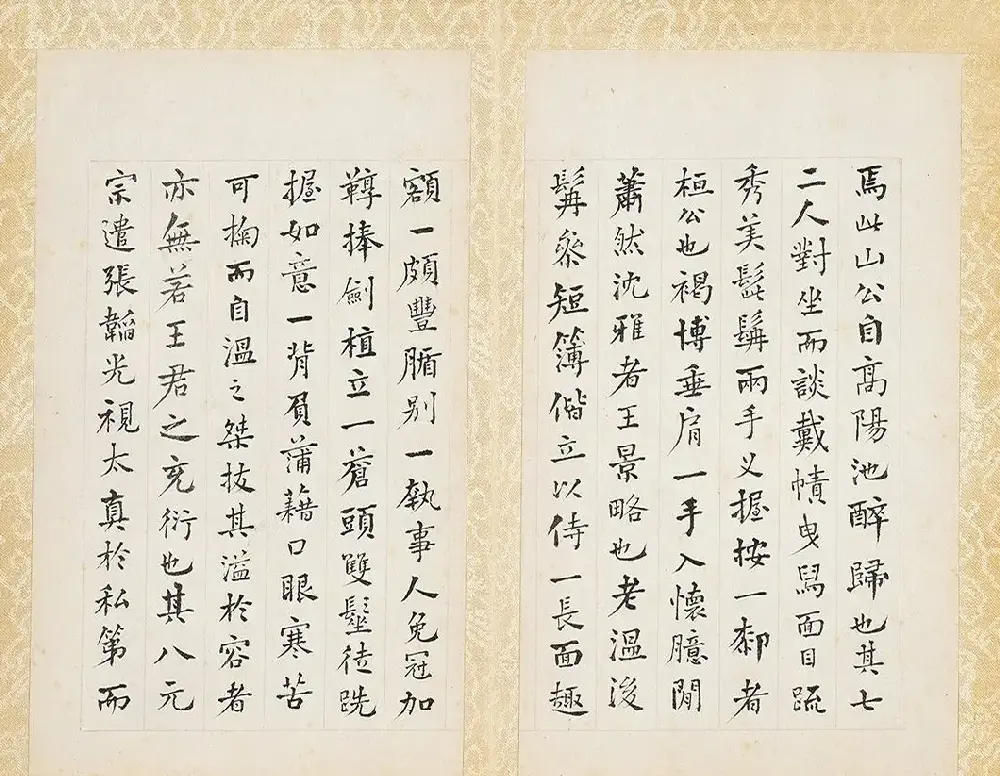 焉此山公自高陽池醉歸也其七
二人對坐而談戴幘曳舄面目疏
秀美髭髯兩手叉握按一厀者
桓公也褐博垂肩一手入懷臆閒
蕭然沈雅者王景略也老溫後
髯參短簿偕立以侍一長面趣
額一頗豐腯別一執事人免冠加
鞟捧劍植立一蒼頭雙髽徒跣
握如意一背負蒲藉口眼寒苦
可掬而自溫之桀抜其溢於容者
亦無若王君之充衍也其八元
宗遣張韜光視太真於私第而